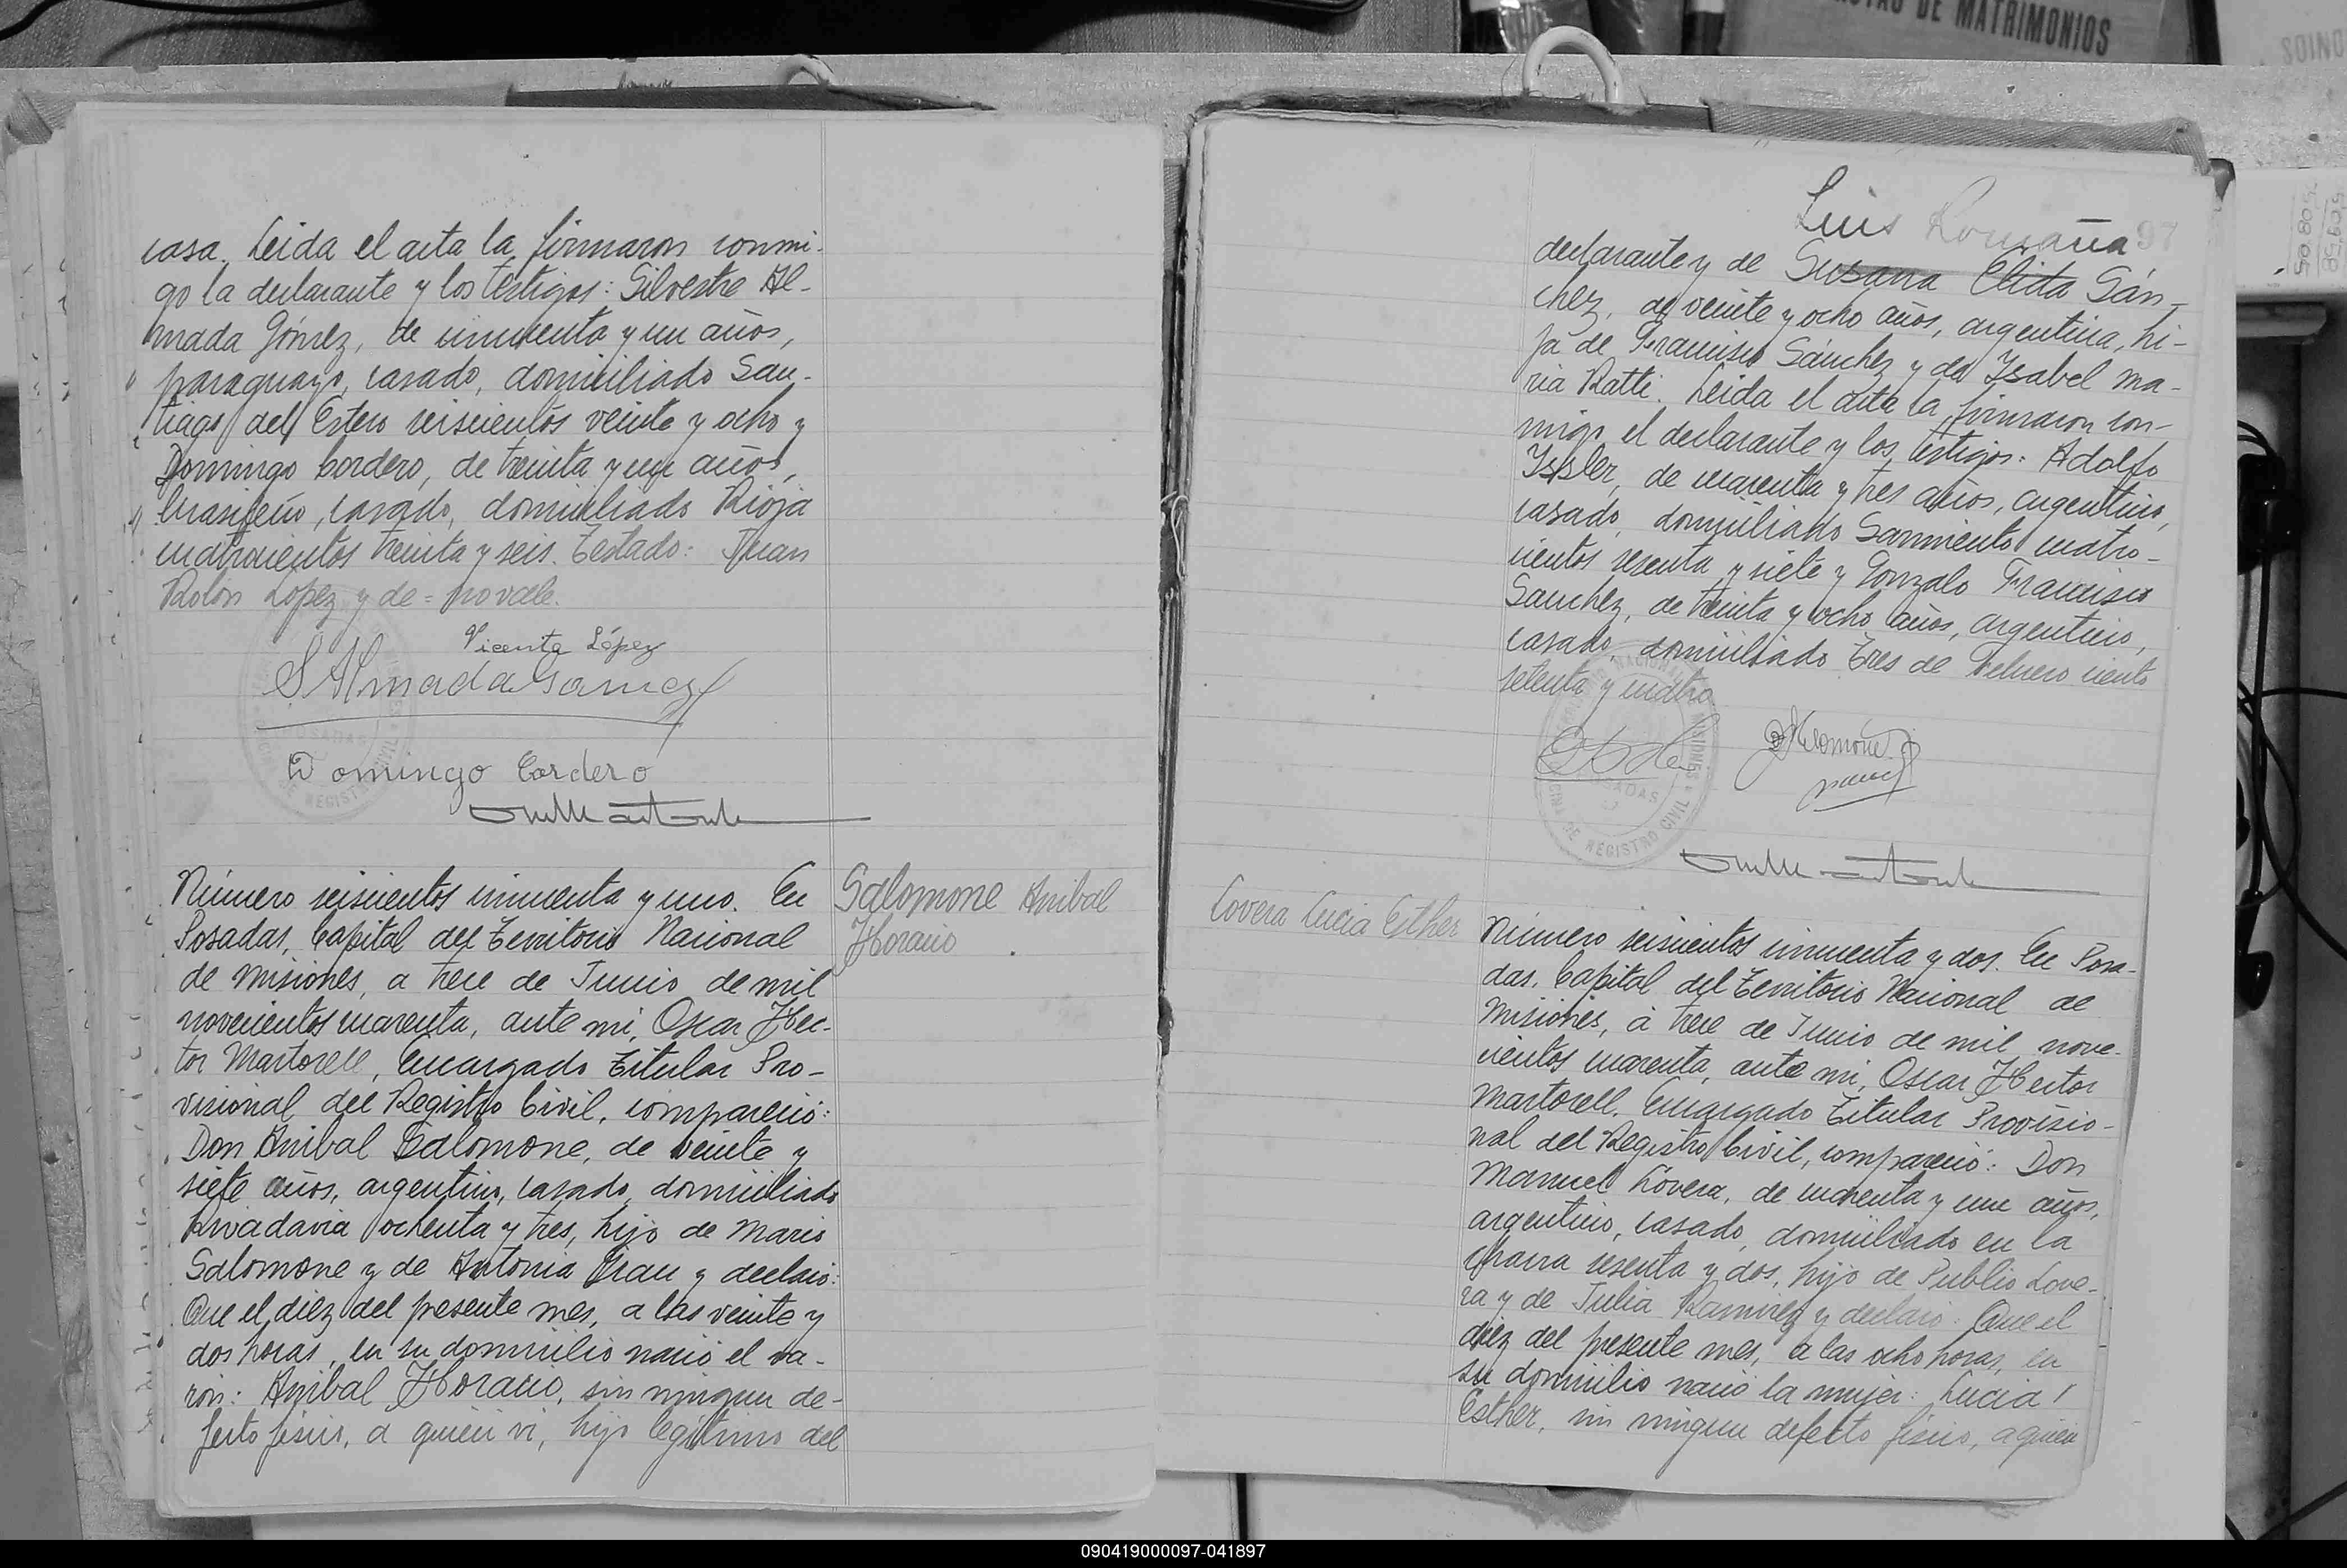 casa. Leida el acta la firmaron conmi-
go la declarante y los testigos: Silvestre Al-
mada Gómez, de cincuenta y un años,
paraguayo, casado, domiciliado San-
tiago del Estero seiscientos veinte y ocho y
Domingo Cordero, de treinta y un años,
brasileño, casado, domiciliado Rioja
cuatrocientos treinta y seis. Testado: Juan
Rolón López y de = no vale.
Vicenta López
S Almada Gomez
Domingo Cordero
Número seiscientos cincuenta y uno. En
Posadas, Capital del Territorio Nacional
de Misiones, a trece de Junio de mil
novecientos cuarenta, ante mi, Oscar Hec-
tor Martorell, Encargado Titular Pro-
visional del Registro Civil, compareció:
Don Anibal Salomone, de veinte y
siete años, argentino, casado, domiciliado
Rivadavia ochenta y tres, hijo de Mario
Salomone y de Antonia Grau y declaró:
Que el diez del presente mes, a las veinte y
dos horas, en su domicilio nació el va-
rón: Anibal Horacio, sin ningun de-
fecto fisico, a quien vi, hijo legitimo del
Salomone Anibal
Horacio
Luis Romaña 97
declarante y de Susana Elida Sán-
chez, de veinte y ocho años, argentina, hi-
ja de Francisco Sánchez y de Isabel Ma-
ria Ratti. Leida el acta la firmaron con-
migo el declarante y los testigos: Adolfo
Issler, de cuarenta y tres años, argentino,
casado, domiciliado Sarmiento cuatro-
cientos sesenta y siete y Gonzalo Francisco
Sanchez, de treinta y ocho años, argentino,
casado, domiciliado Tres de Febrero ciento
setenta y cuatro.
Lovera Lucia Esther
Número seiscientos cincuenta y dos. En Posa-
das, Capital del Territorio Nacional de
Misiones, á trece de Junio de mil nove-
cientos cuarenta, ante mi, Oscar Hector
Martorell, Encargado Titular Provisio-
nal del Registro Civil, compareció: Don
Manuel Lovera, de cuarenta y un años,
argentino, casado, domiciliado en la
chacra sesenta y dos, hijo de Publio Love-
ra y de Julia Ramirez y declaró: Que el
diez del presente mes, a las ocho horas, en
su domicilio nació la mujer: Lucia
Esther, sin ningun defecto fisico, a quien
DE MATRIMONIOS
090419000097-041897